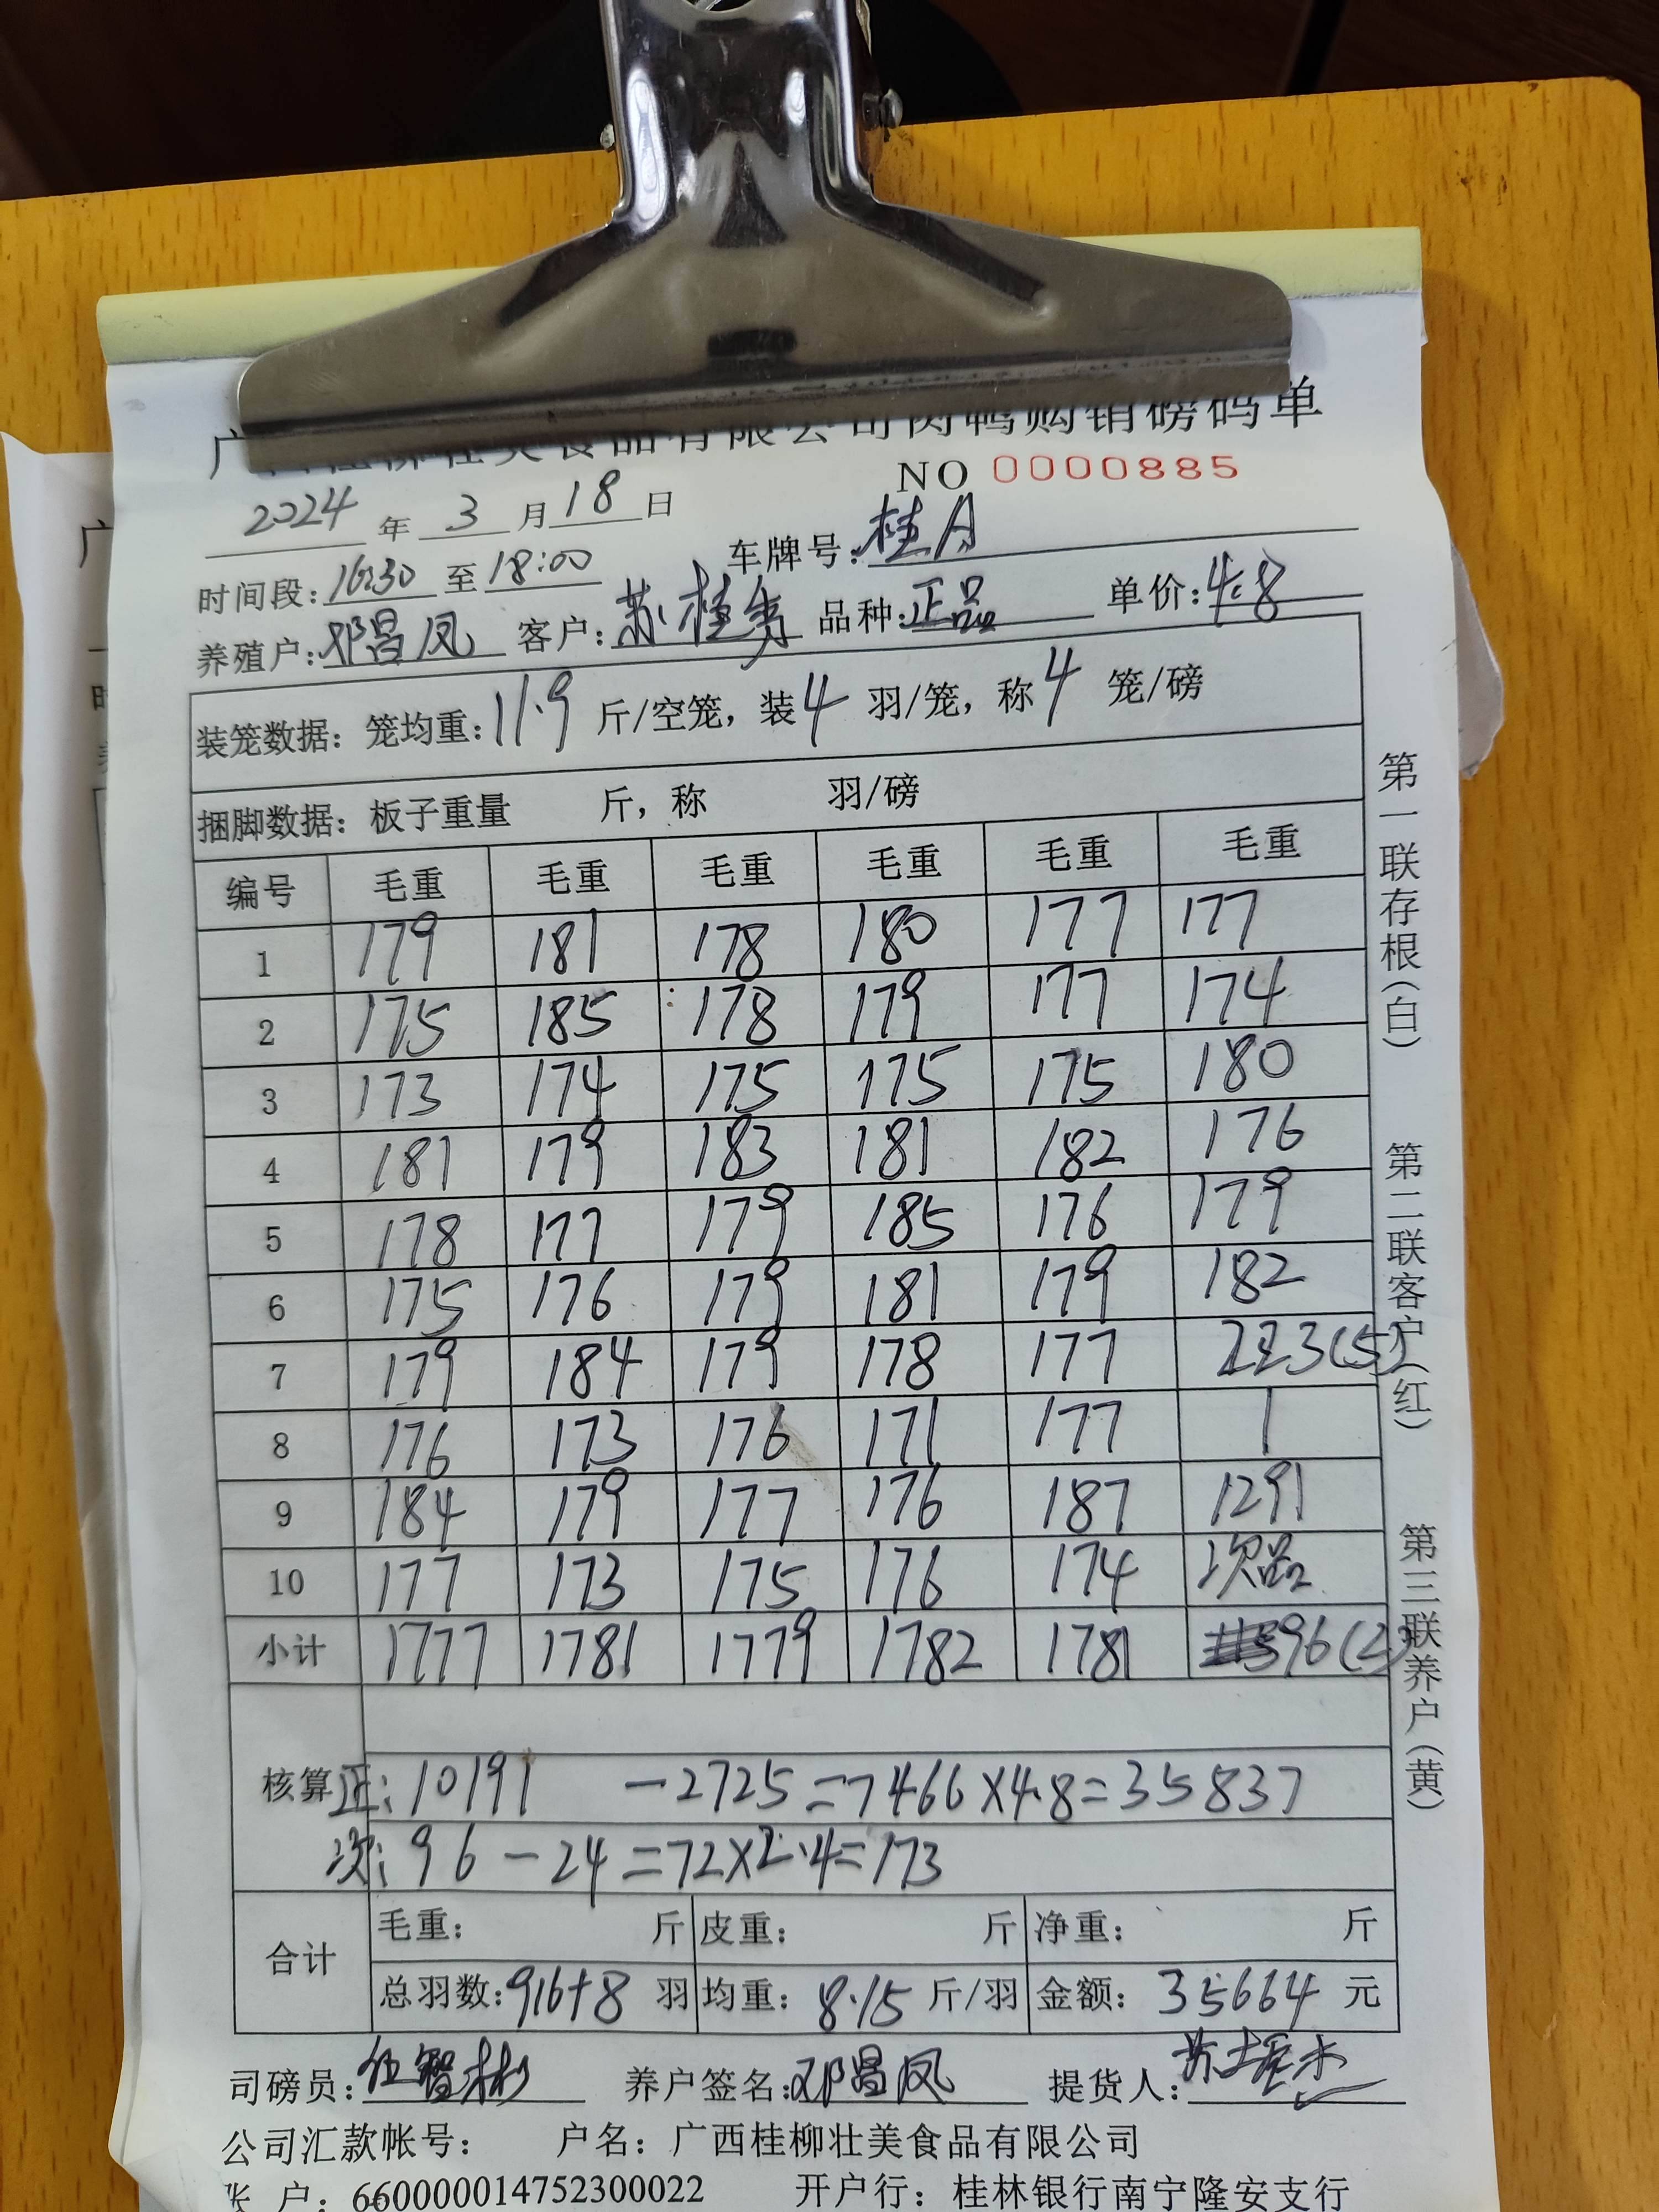 食品有限公司肉鸭购销磅码单
NO 0000885
2024 年 3 月 18 日
车牌号:桂A
时间段:16:30 至 18:00
养殖户:邓昌凤 客户:苏桂秀 品种:正品 单价:4.8
装笼数据：笼均重:11.9 斤/空笼，装4 羽/笼，称4 笼/磅
捆脚数据：板子重量 斤，称 羽/磅
编号 毛重 毛重 毛重 毛重 毛重 毛重
1 179 181 178 180 177 177
2 175 185 178 179 177 174
3 173 174 175 175 175 180
4 181 179 183 181 182 176
5 178 177 179 185 176 179
6 175 176 179 181 179 182
7 179 184 179 178 177 223(5)
8 176 173 176 171 177 1
9 184 179 177 176 187 1291
10 177 173 175 176 174 次品
小计 1777 1781 1779 1782 1781 96(2)
核算 正:10191 -2725=7466×4.8=35837
次:96-24=72×2.4=173
合计 毛重: 斤 皮重: 斤 净重: 斤
总羽数:916+8 羽 均重:8.15 斤/羽 金额:35664 元
司磅员: 养户签名:邓昌凤 提货人:
公司汇款帐号： 户名：广西桂柳壮美食品有限公司
账 户：660000014752300022 开户行：桂林银行南宁隆安支行
第一联存根（白） 第二联客户（红） 第三联养户（黄）